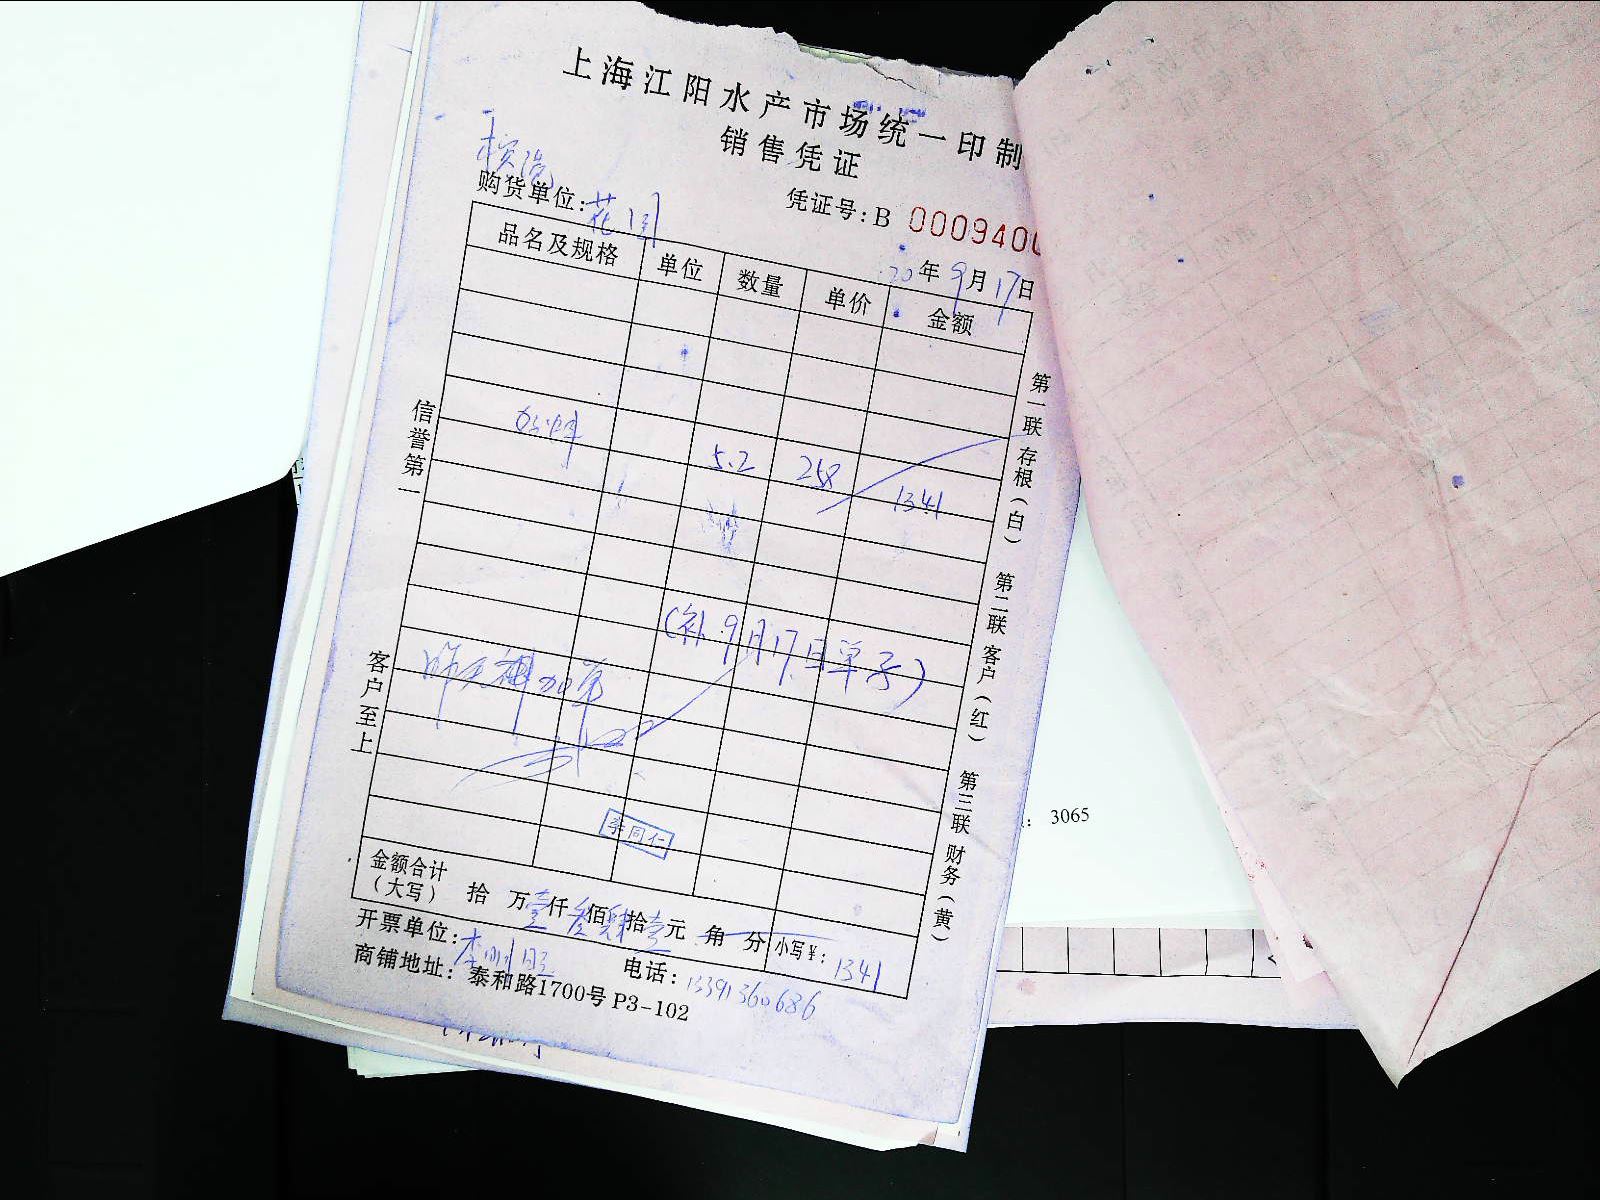 上海江阳水产市场统一印制
销售凭证
购货单位: 花园
凭证号: B 000940
20年9月17日
品名及规格 单位 数量 单价 金额
5.2 258 1341
(补9月17日单子)
昨天 加单
李同仁
金额合计(大写) 拾 万壹仟叁佰肆拾壹元 角 分 小写¥: 1341
开票单位: 李
电话: 13391360686
商铺地址: 泰和路1700号 P3-102
信誉第一
客户至上
第一联 存根(白) 第二联 客户(红) 第三联 财务(黄)
: 3065